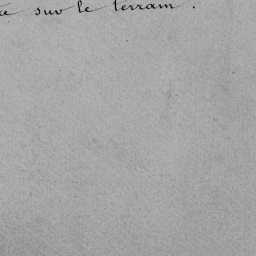 sur le terrain.